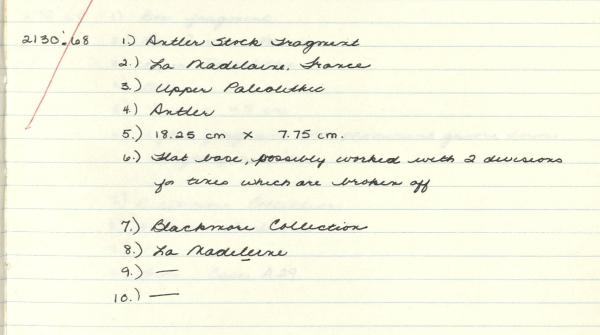 2130:68 1.) Antler Stock Fragment
2.) La Madelaine, France
3.) Upper Paleolithic
4.) Antler
5.) 18.25 cm x 7.75 cm.
6.) Flat base, possibly worked with 2 divisions
for tines which are broken off
7.) Blackmore Collection
8.) La Madeleine
9.) —
10.) —